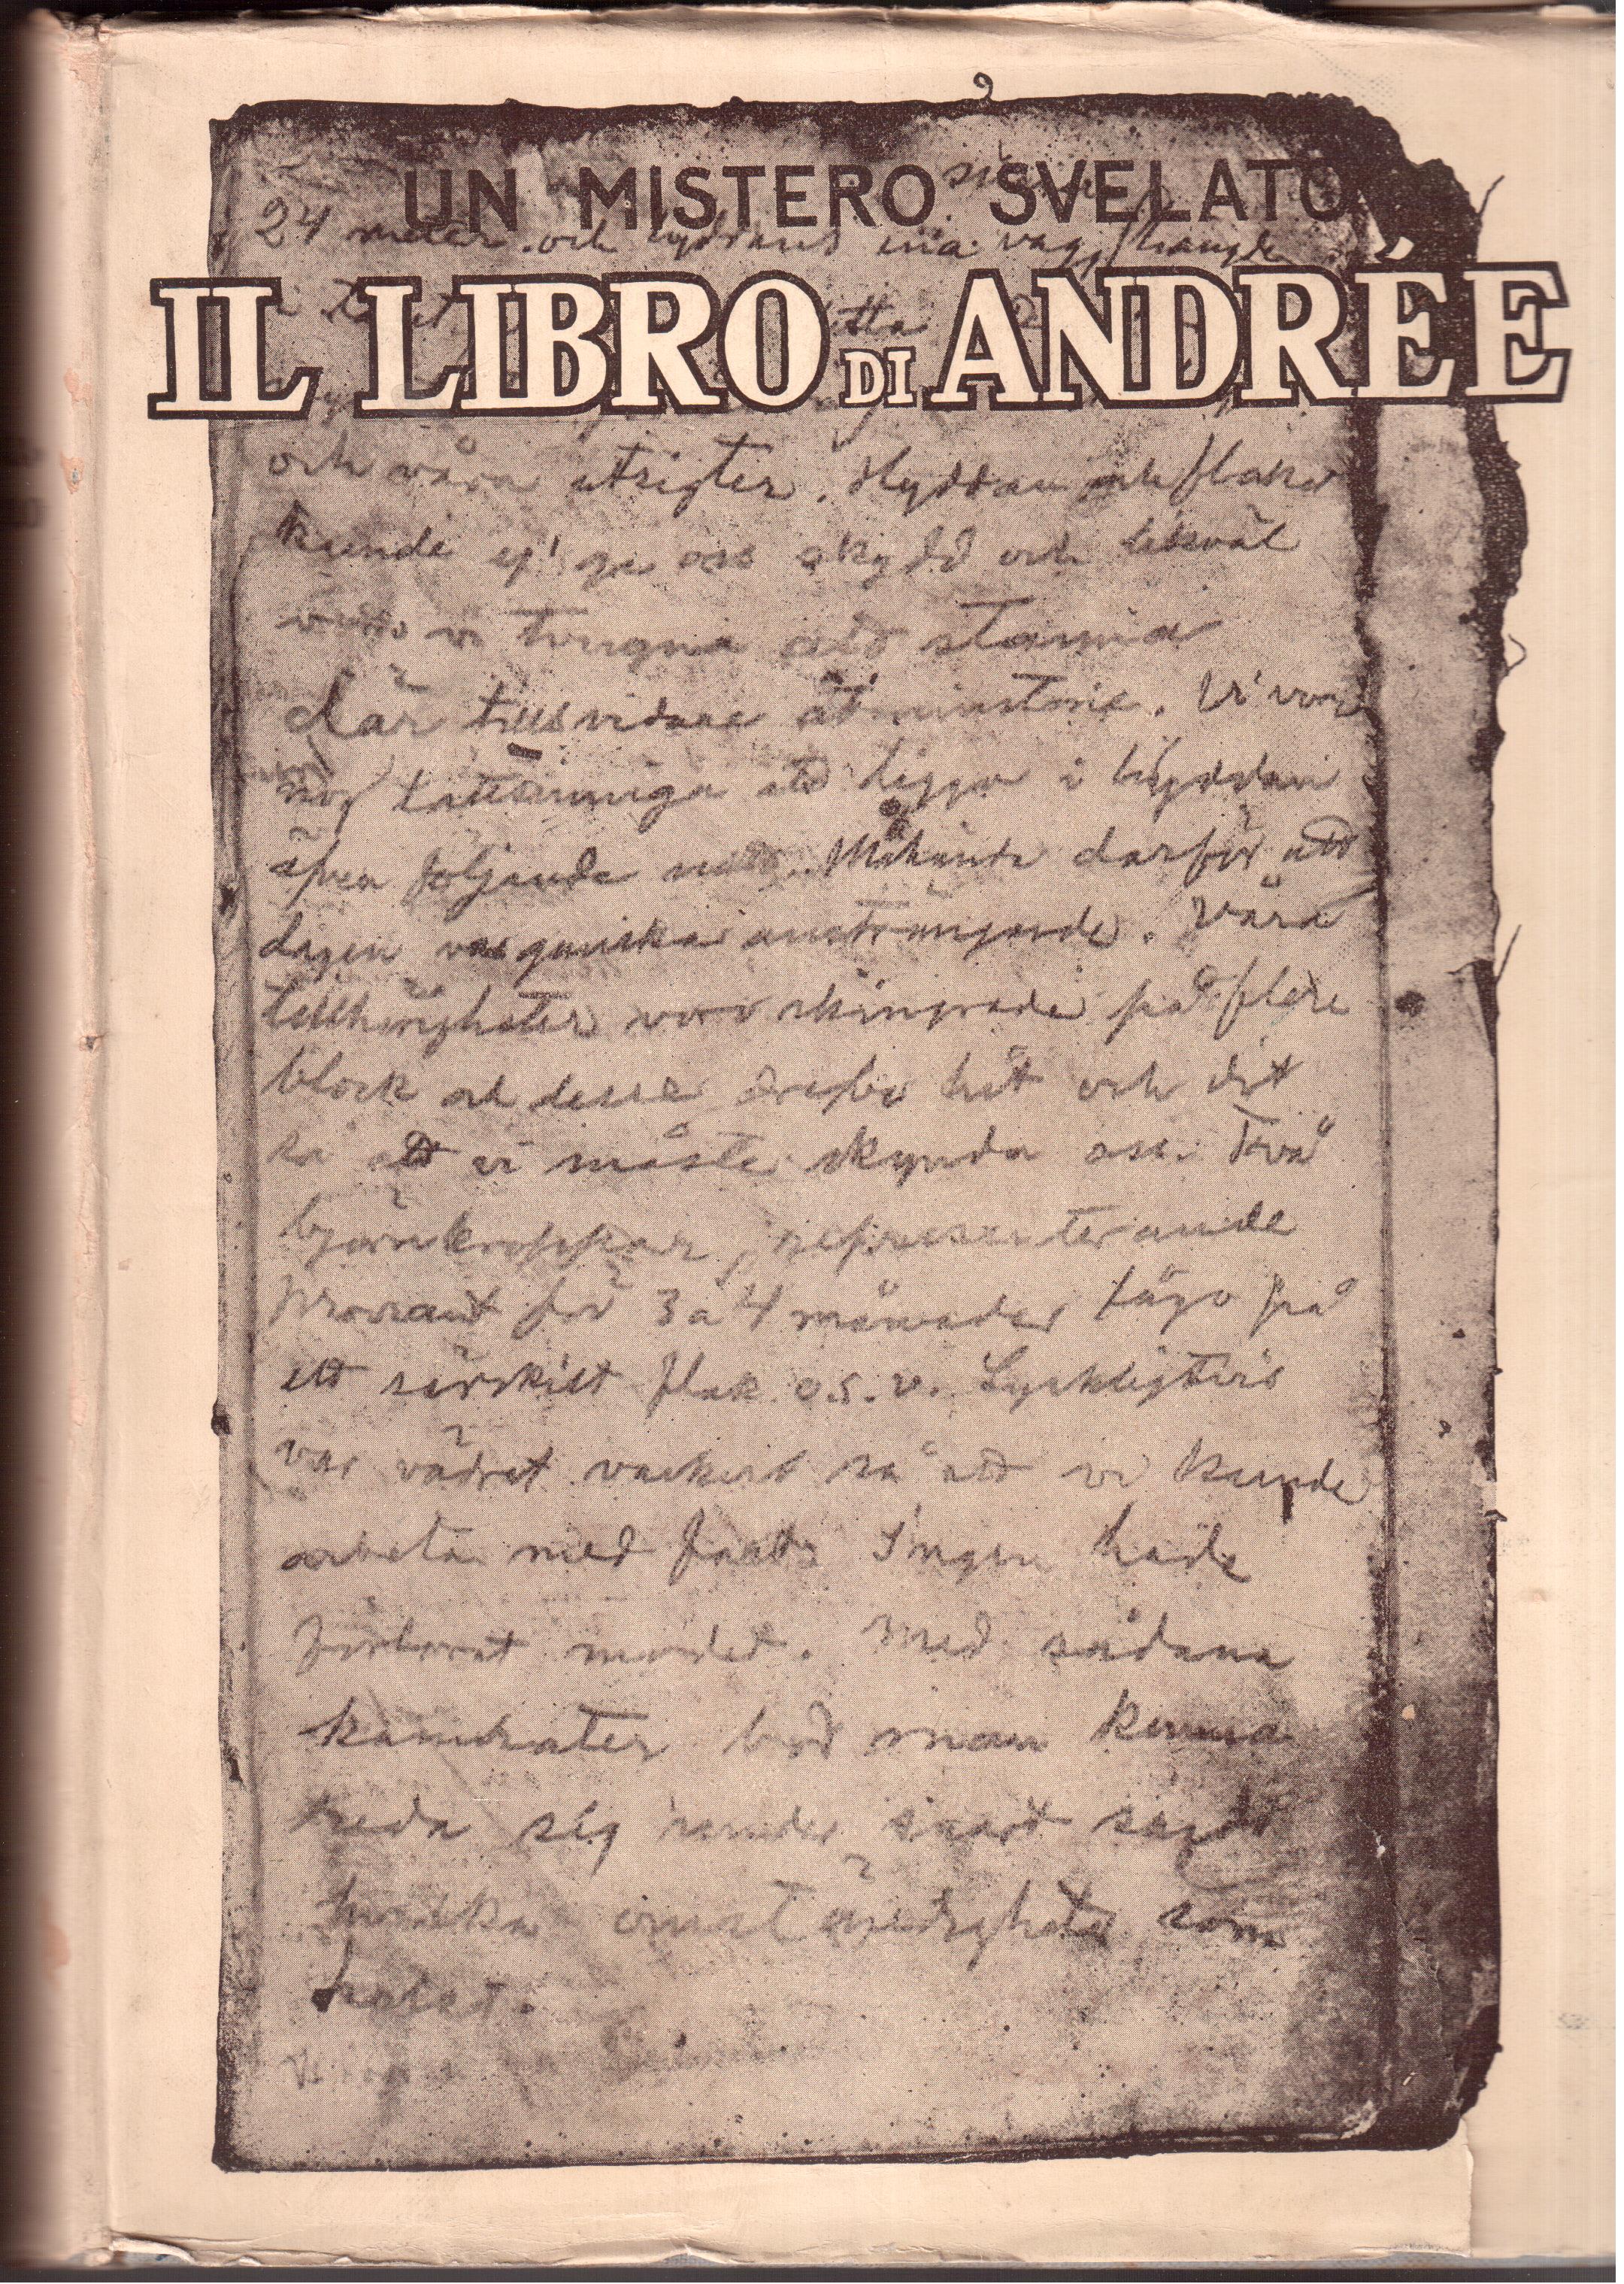 UN MISTERO SVELATO
24 meter och hyddans ena vägg hängde
IL LIBRO DI ANDRÉE
och våra utsigter. Hyddan och flaket
kunde ej ge oss skydd och likväl
voro vi tvugna att stanna
där tillsvidare åtminstone. Vi voro
nog lättsinniga att ligga i hyddan
äfven följande natt. Måhända därför att
dagen var ganska ansträngande. Våra
tillhörigheter voro skingrade på flere
block och dessa drefvo hit och dit
så att vi måste skynda oss. Två
björnkroppar, representerande
proviant för 3 à 4 månader lågo på
ett särskilt flak o.s.v. Lyckligtvis
var vädret vackert så att vi kunde
arbeta med fart. Ingen hade
förlorat modet. Med sådana
kamrater bör man kunna
reda sig under snart sagdt
hvilka omständigheter som
helst.